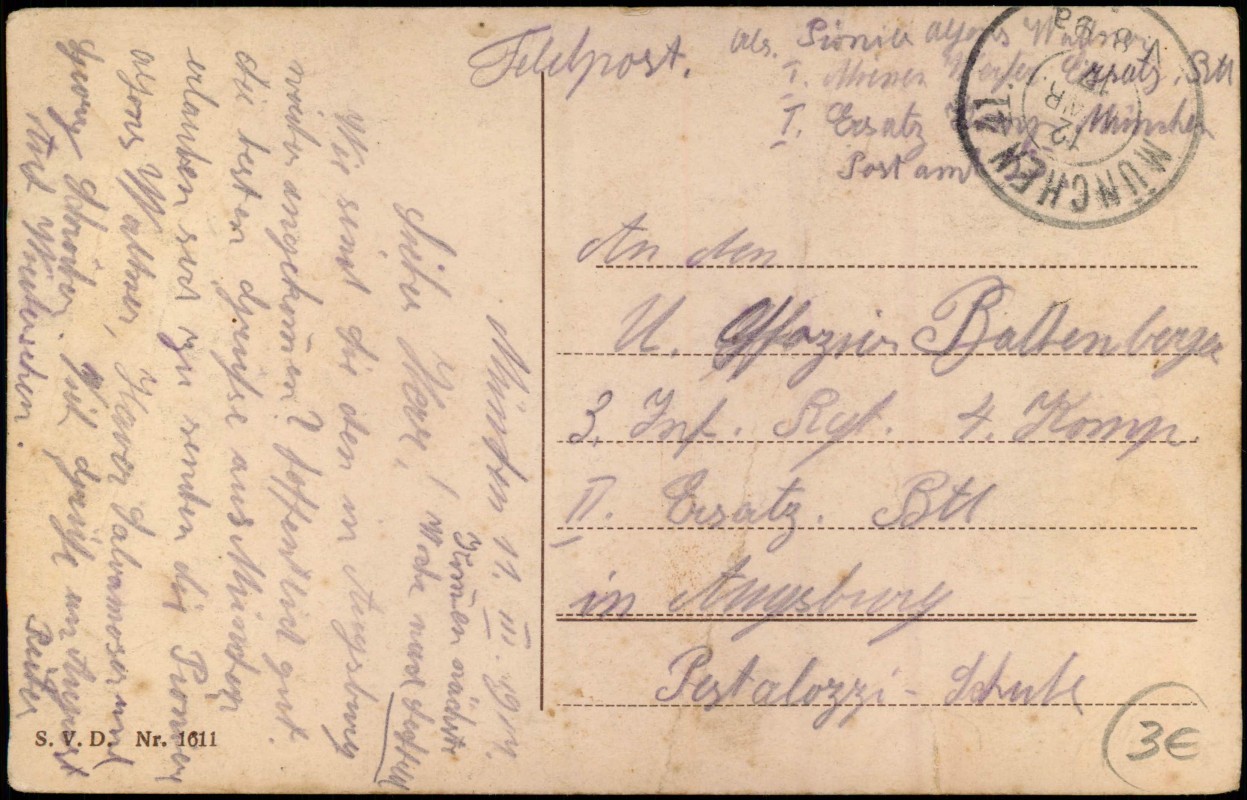 Feldpost.
Abs. Pionier Alfons Waltner
I. Minen Werfer Ersatz. Btl
I. Ersatz Komp. München
Postamt
MÜNCHEN 41.
12 MAR.
V 8-9 a
An den
U. Offozier Baltenberger
3. Inf. Rgt. 4. Komp.
II. Ersatz. Btl
in Augsburg
Pestalozzi-Schule
München 11. III. 1917.
Lieber Herr,
Komen nächste
Woche nach
Wie sind Sie den in Augsburg
wieder angekomen? Hoffentlich gut.
die besten Grüsse aus München
erlauben sich zu senden die Pionier
Alfons Waltner, Xaver Salvamoser und
Georg Schreiber. Viel Grüsse an August
und
S. V. D. Nr. 1611
3€